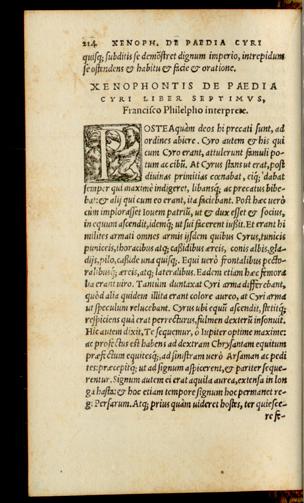 214 XENOPH. DE PAEDIA CYRI
quisq; subditis se demõstret dignum imperio, intrepidum
se ostendens & habitu & facie & oratione.
XENOPHONTIS DE PAEDIA
CYRI LIBER SEPTIMVS,
Francisco Philelpho interprete.
POSTEAquàm deos hi precati sunt, ad
ordines abiere. Cyro autem & his qui
cum Cyro erant, attulerunt famuli po-
tum ac cibũ. At Cyrus stans ut erat, post
diuinas primitias cœnabat, eiq; dabat
semper qui maximè indigeret, libansq; ac precatus bibe-
bat: & alij qui cum eo erant, ita faciebant. Post hæc uerò
cùm implorasset Iouem patriũ, ut & dux esset & socius,
in equum ascendit, idemq; ut sui facerent iußit. Et erant hi
milites armati omnes armis ijsdem quibus Cyrus, tunicis
puniceis, thoracibus atq; caßidibus æreis, conis albis, gla-
dijs, pilo, caßide una quisq;. Equi uerò frontalibus pecto-
ralibusq; æreis, atq; lateralibus. Eadem etiam hæc femora
lia erant uiro. Tantùm duntaxat Cyri arma differebant,
quòd alia quidem illita erant colore aureo, at Cyri arma
ut speculum relucebant. Cyrus ubi equũ ascendit, stetitq;
respiciens quà erat perrecturus, fulmen dexterũ insonuit.
Hic autem dixit, Te sequemur, ò Iupiter optime maxime:
ac profectus est habens ad dextram Chrysantam equitum
præfectum equitesq;, ad sinistram uerò Arsaman ac pedi
tes: præcepitq; ut ad signum aspicerent, & pariter seque-
rentur. Signum autem ei erat aquila aurea, extensa in lon
ga hasta: & hoc etiam tempore signum hoc permanet re-
gi Persarum. Atq; prius quàm uideret hostes, ter quiesce-
re fe-